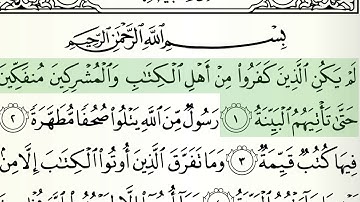 بِسْمِ اللَّهِ الرَّحْمَٰنِ الرَّحِيمِ
لَمْ يَكُنِ الَّذِينَ كَفَرُوا مِنْ أَهْلِ الْكِتَابِ وَالْمُشْرِكِينَ مُنفَكِّينَ
حَتَّىٰ تَأْتِيَهُمُ الْبَيِّنَةُ ١ رَسُولٌ مِّنَ اللَّهِ يَتْلُوا صُحُفًا مُّطَهَّرَةً ٢
فِيهَا كُتُبٌ قَيِّمَةٌ ٣ وَمَا تَفَرَّقَ الَّذِينَ أُوتُوا الْكِتَابَ إِلَّا مِنْ